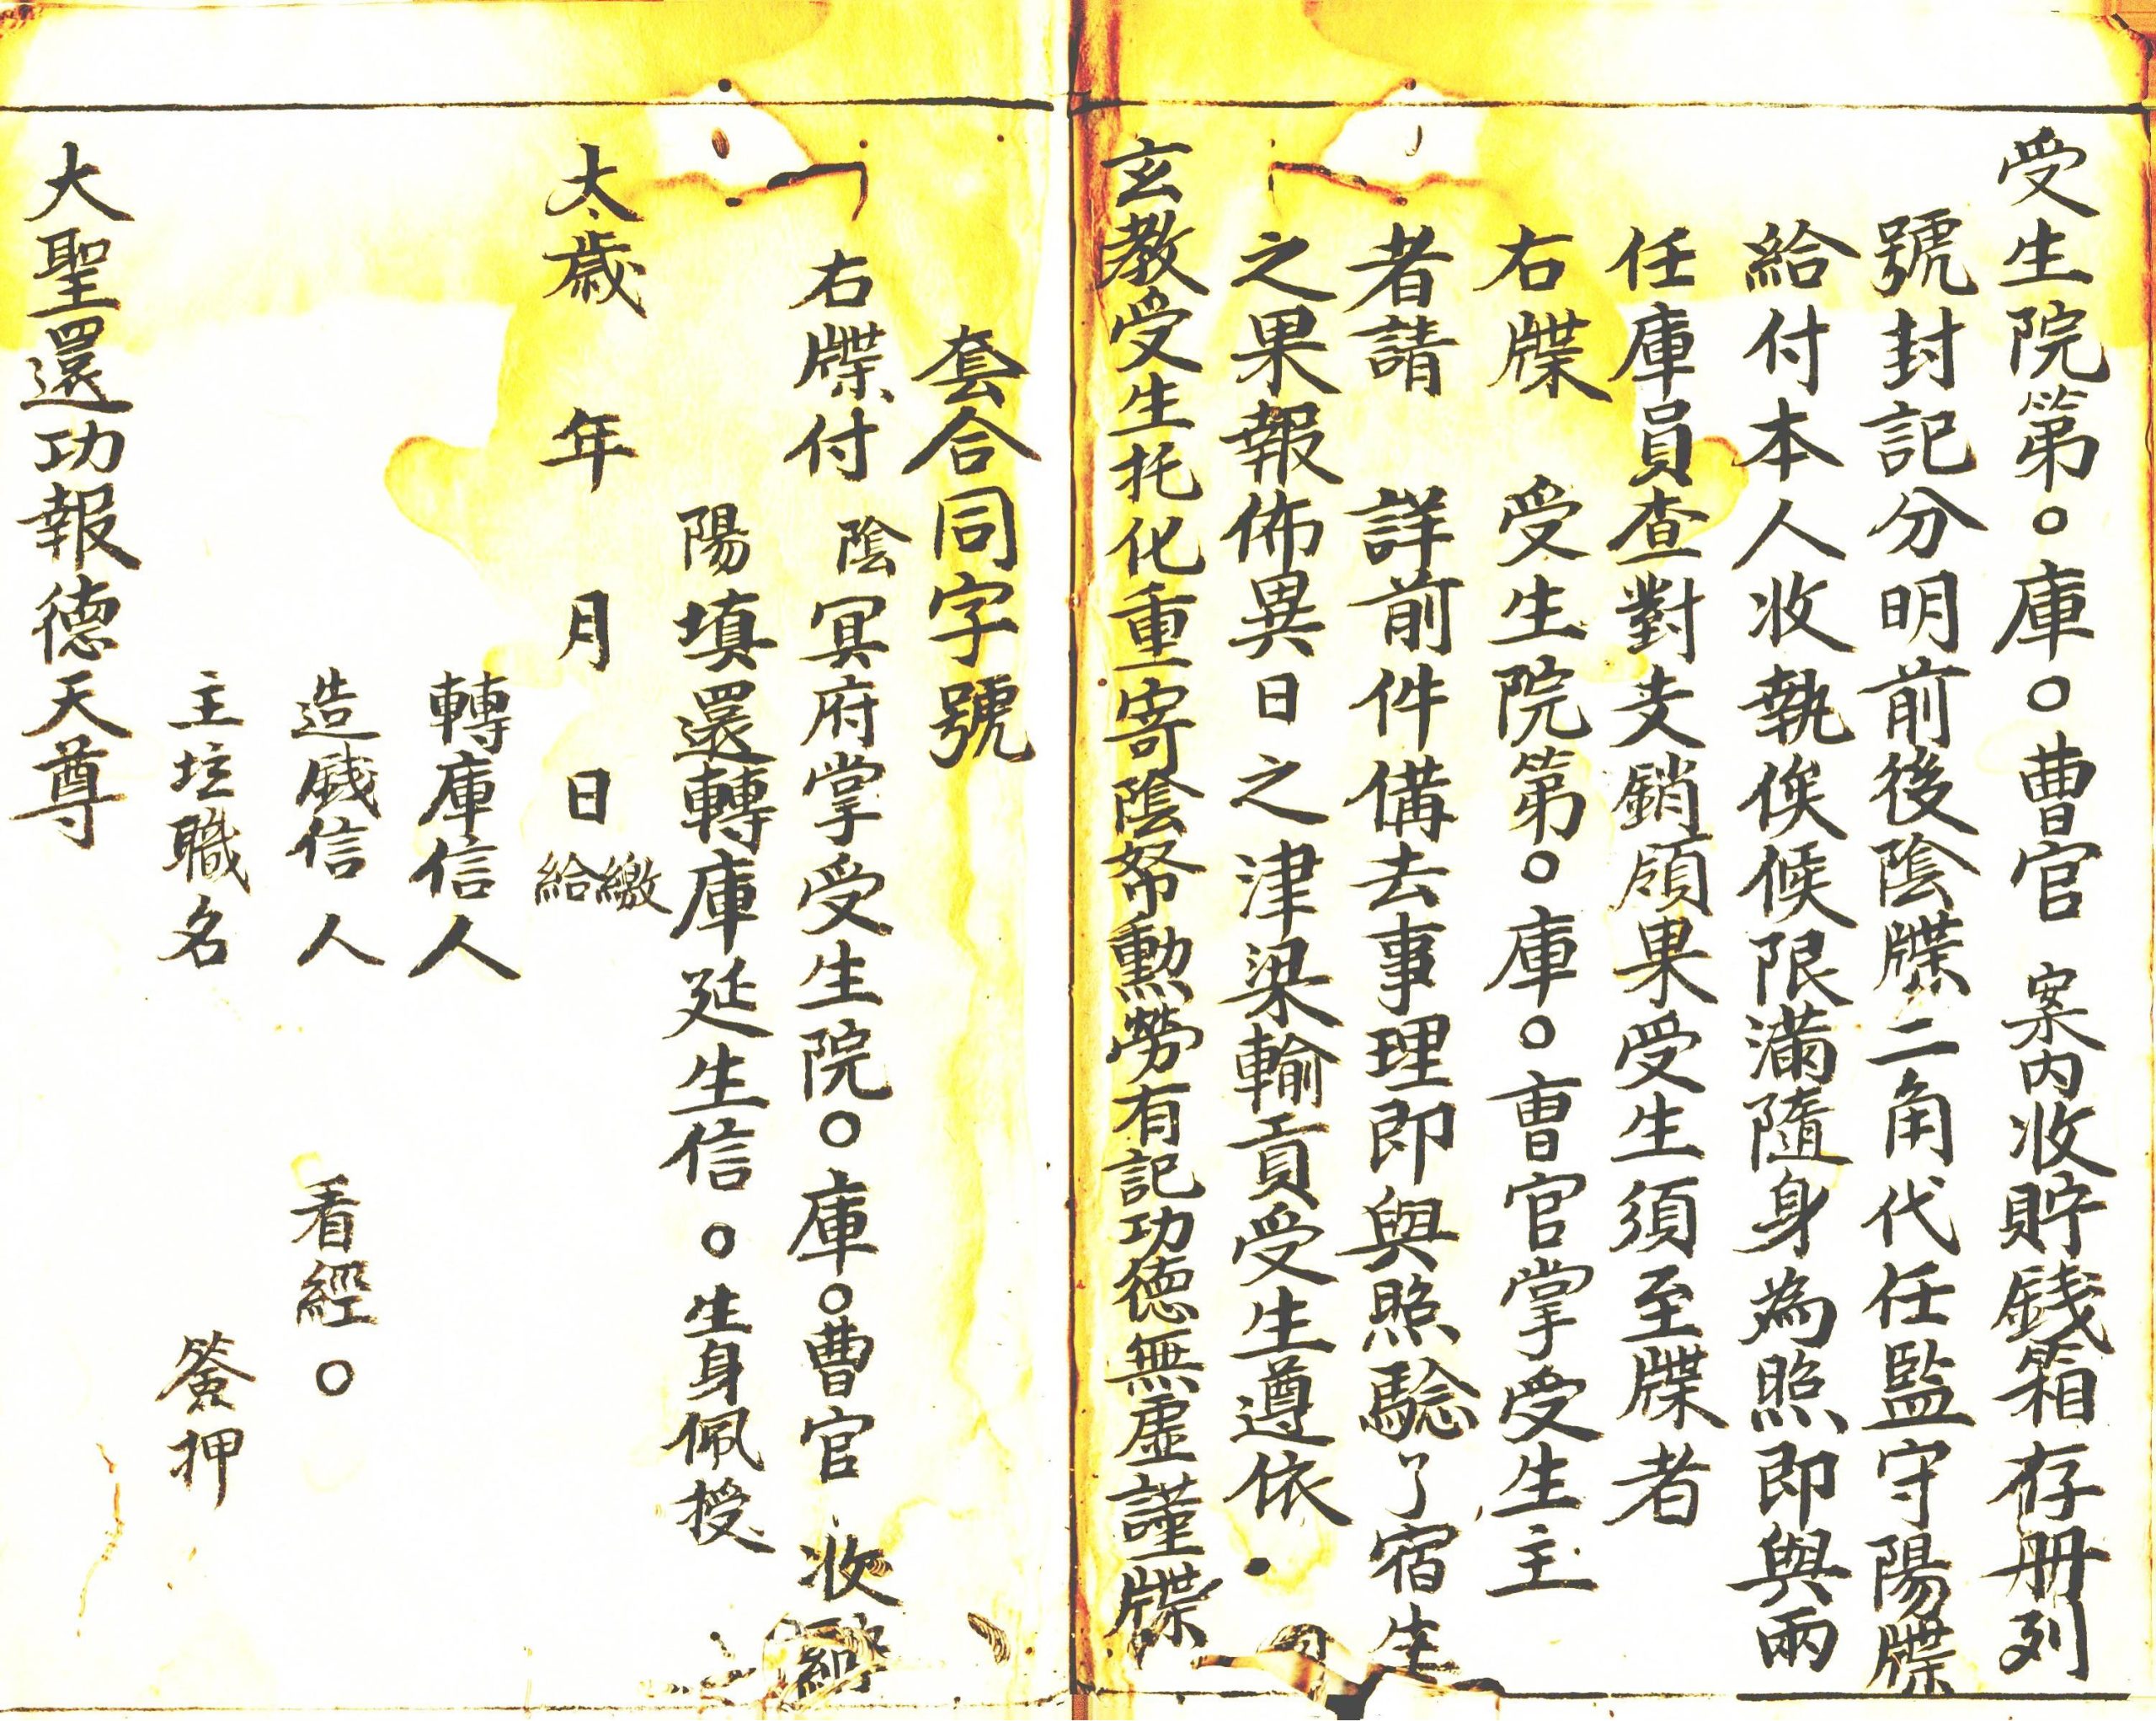 受生院第○庫○曹官 案内收貯錢箱存册列
號封記分明前後陰牒二角代任監守陽牒
給付本人收執俟候限滿隨身為照即與兩
任庫員查對支銷領果受生須至牒者
右牒 受生院第○庫○曹官掌受生主
者請 詳前件備去事理即與照驗了宿生
之果報佈異日之津梁輸貢受生遵依
玄教受生托化重寄陰帑勳勞有記功德無虛謹牒
套合同字號
右牒付 陰冥府掌受生院○庫○曹官 收
陽填還轉庫延生信○生身佩授
太歲 年 月 日 給繳
轉庫信人
造錢信人 看經○
主坛職名 簽押
大聖還功報德天尊